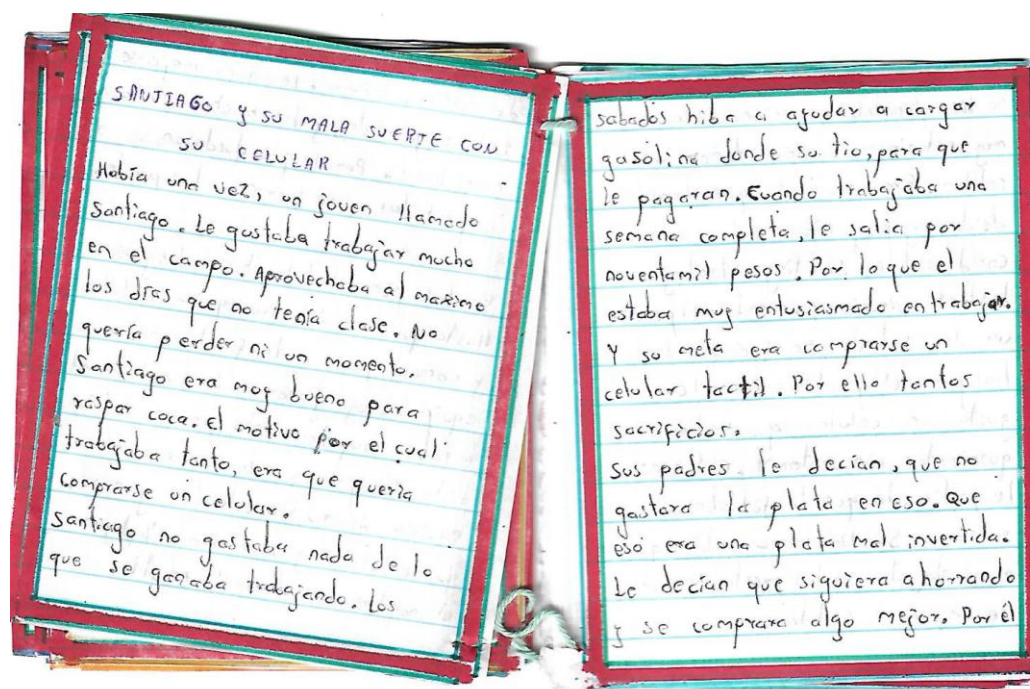 SANTIAGO y SU MALA SUERTE CON
SU CELULAR
Había una vez, un joven llamado
Santiago. Le gustaba trabajar mucho
en el campo. Aprovechaba al maximo
los días que no tenía clase. No
quería perder ni un momento.
Santiago era muy bueno para
raspar coca. El motivo por el cual
trabajaba tanto, era que quería
comprarse un celular.
Santiago no gastaba nada de lo
que se ganaba trabajando. Los
sabados hiba a ayudar a cargar
gasolina donde su tio, para que
le pagaran. Cuando trabajaba una
semana completa, le salia por
noventamil pesos. Por lo que el
estaba muy entusiasmado en trabajar.
Y su meta era comprarse un
celular tactil. Por ello tantos
sacrificios.
Sus padres le decían, que no
gastara la plata en eso. Que
eso era una plata mal invertida.
Le decían que siguiera ahorrando
y se comprara algo mejor. Por él